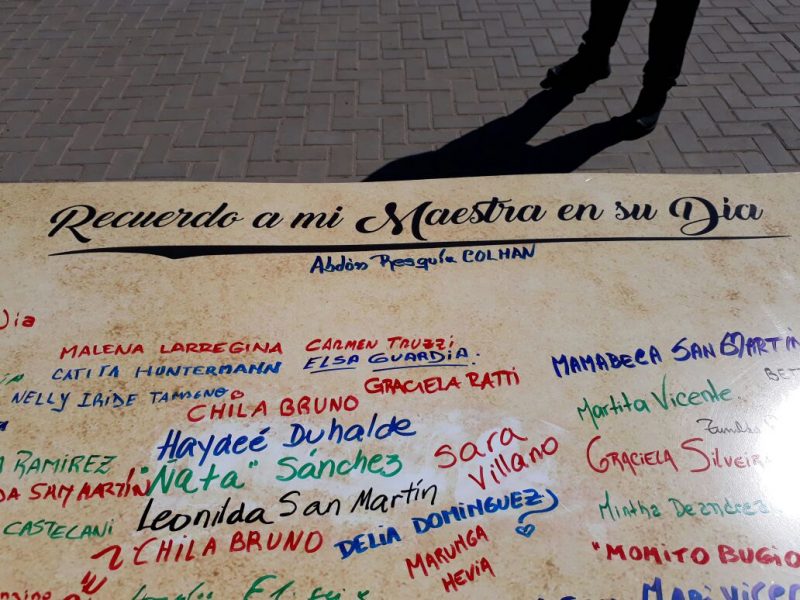 Recuerdo a mi Maestra en su Dia
Abdón Resquía COLMAN
Dia
MALENA LARREGINA
CARMEN TRUZZI
CATITA HUNTERMANN
ELSA GUARDIA.
MAMABECA SAN MARTIN
NELLY IRIDE
GRACIELA RATTI
CHILA BRUNO
Martita Vicente
Haydeé Duhalde
Sara
Villano
GRACIELA SILVEIRA
RAMIREZ
"Ñata" Sánchez
SAN MARTÍN
Leonilda San Martín
Mirtha Deandrea
CASTELANI
CHILA BRUNO
DELIA DOMINGUEZ
MARUNGA
HEVIA
"MOMITO BUGIO